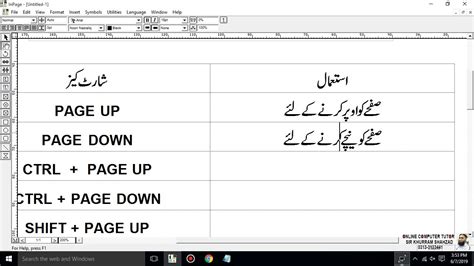 InPage - [Untitled-1]
File Edit View Insert Format Utilities Language Arrange Window Help
Normal
Normal
شارٹ کیز
استعمال
PAGE UP
صفحے کو اوپر کرنے کے لئے
PAGE DOWN
صفحے کو نیچے کرنے کے لئے
CTRL + PAGE UP
CTRL + PAGE DOWN
SHIFT + PAGE UP
ONLINE COMPUTER TUTOR
SIR KHURRAM SHAHZAD
For Help, press F1
Search the Web and Windows
3:53 PM
6/7/2019